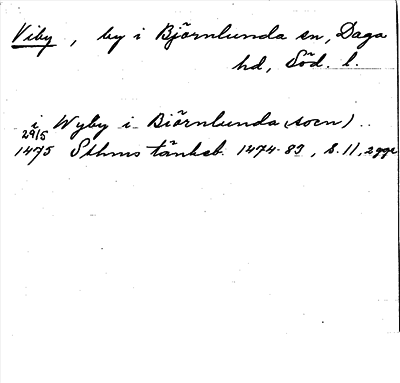 Viby, by i Björnlunda sn, Daga
hd, Söd. l.
i Wyby i Biörnlunda (socn)..
29/5
1475 Sthms tänkeb. 1474-83, s. 11, 2 ggr